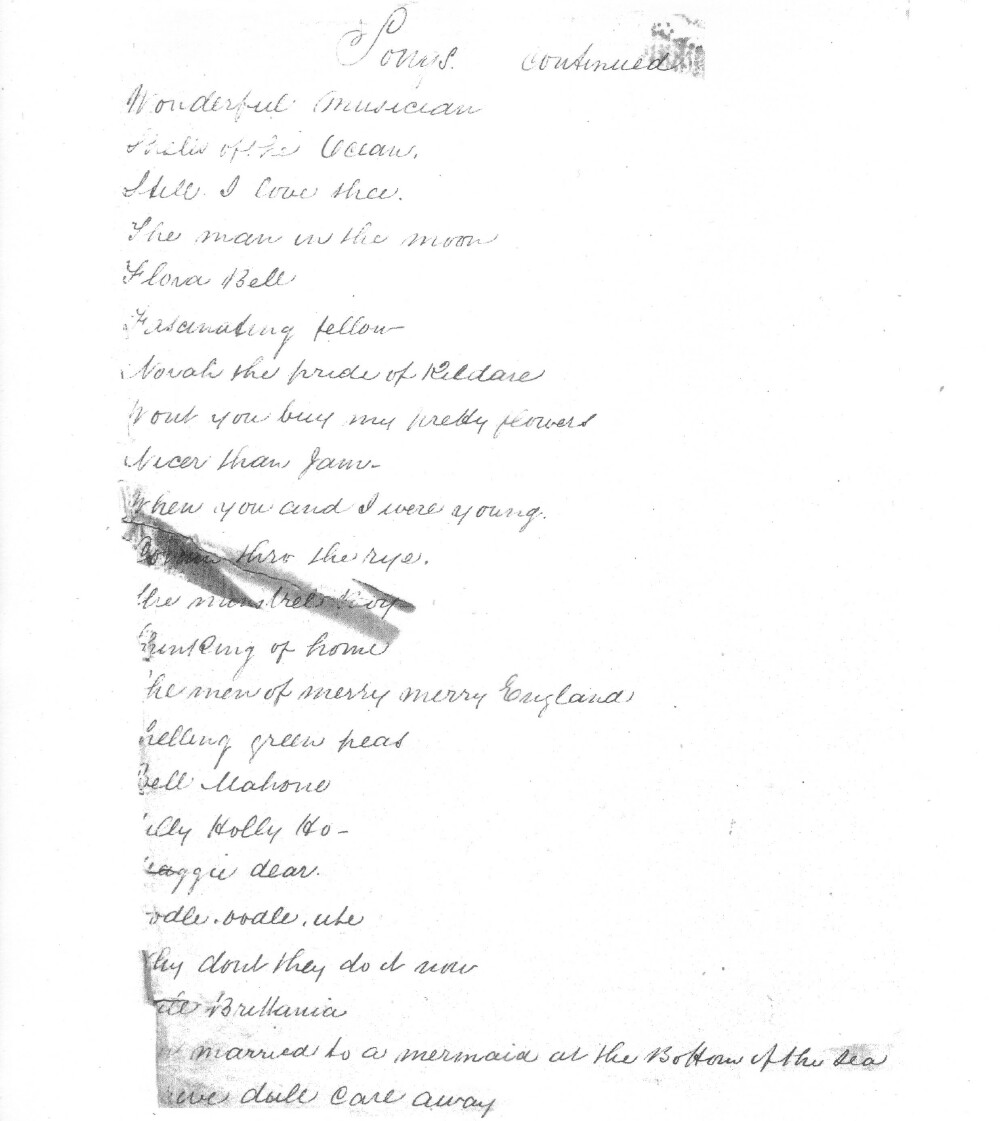 Songs. continued
Wonderful Musician
of the Ocean.
Still I love thee.
The man in the moon
Flora Bell
Fascinating fellow
Norah the pride of Kildare
Wont you buy my pretty flowers
Nicer than Jam-
When you and I were young.
thro the rye.
the minstrel boy
Thinking of home
he men of merry merry England
helling green peas
Bell Mahone
illy Holly Ho-
aggie dear.
odle. oodle. ute
hy dont they do it now
Brittania
married to a mermaid at the Bottom of the sea
dull care away